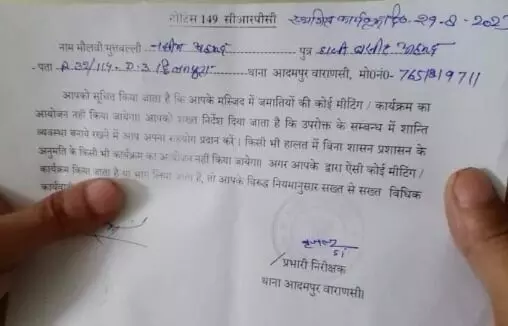 नोटिस 149 सीआरपीसी
नाम मौलवी मुत्तवल्ली पुत्र
पता थाना आदमपुर वाराणसी, मो0नं0-
आपको सूचित किया जाता है कि आपके मस्जिद में जमातियों की कोई मीटिंग / कार्यक्रम का
आयोजन नहीं किया जायेगा। आपको सख्त निर्देश दिया जाता है कि उपरोक्त के सम्बन्ध में शान्ति
व्यवस्था बनाये रखने में आप अपना सहयोग प्रदान करें। किसी भी हालत में बिना शासन प्रशासन के
अनुमति के किसी भी कार्यक्रम का आयोजन नहीं किया जायेगा। अगर आपके द्वारा ऐसी कोई मीटिंग /
कार्यक्रम किया जाता है या भाग लिया जाता है, तो आपके विरूद्ध नियमानुसार सख्त से सख्त विधिक
प्रभारी निरीक्षक
थाना आदमपुर वाराणसी।